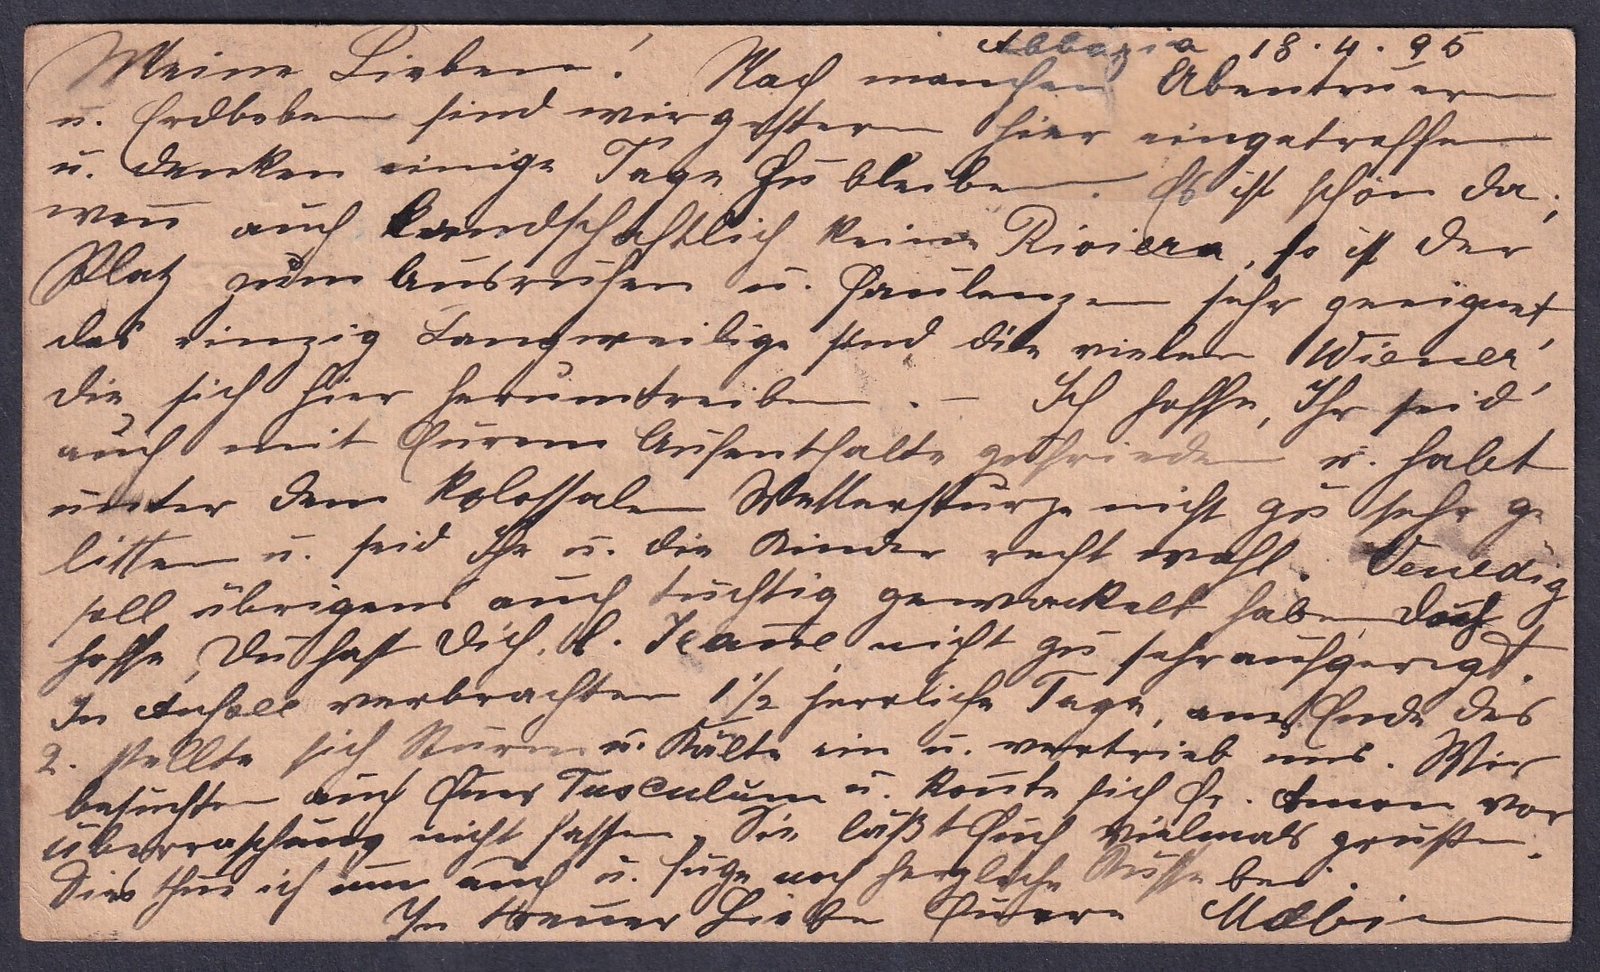 Abbazia 18.4.95
Meine Lieben! Nach manchen Abenteuern
u. Erdbeben sind wir gestern hier eingetroffen
u. denken einige Tage zu bleiben. Es ist schön da,
wenn auch landschaftlich keine Riviera, so ist der
Platz zum Ausruhen u. Faulenzen sehr geeignet
das einzig Langweilige sind die vielen Wiener,
die sich hier herumtreiben. – Ich hoffe, Ihr seid
auch mit Eurem Aufenthalte zufrieden u. habt
unter dem kolossalen Wettersturze nicht zu sehr ge
litten u. seid Ihr u. die Kinder recht wohl. Venedig
soll übrigens auch tüchtig gewackelt haben, doch
hoffe, Du hast Dich, l. Jeanne nicht zu sehr aufgeregt.
In verbrachten 1 1/2 herrliche Tage, am Ende des
2. stellte sich Sturm u. Kälte ein u. vertrieb uns. Wir
besuchten auch Euer Tusculum u. konnte sich Fr. vor
Überraschung nicht fassen. Sie läßt Euch vielmals grüßen.
Dies thue ich nun auch u. füge noch herzliche Küsse bei.
In treuer Liebe Euere